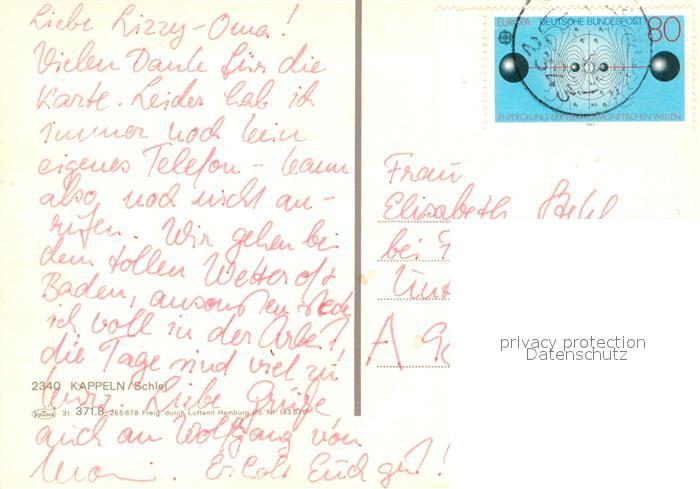 Liebe Lizzy-Oma!
Vielen Dank für die
Karte. Leider hab ich
immer noch kein
eigenes Telefon - kann
also noch nicht an-
rufen. Wir gehen bei
dem tollen Wetter oft
Baden, ansonsten stecke
ich voll in der Arbeit,
die Tage sind viel zu
kurz. Liebe Grüße
auch an Wolfgang von
Erholt Euch gut!
2340 KAPPELN/Schlei
Krüger 31. 371.8 265678 Freig. durch Luftamt Hamburg
EUROPA DEUTSCHE BUNDESPOST 80
ENTDECKUNG DER ELEKTROMAGNETISCHEN WELLEN
1983
Frau
Elisabeth
bei
A
privacy protection
Datenschutz